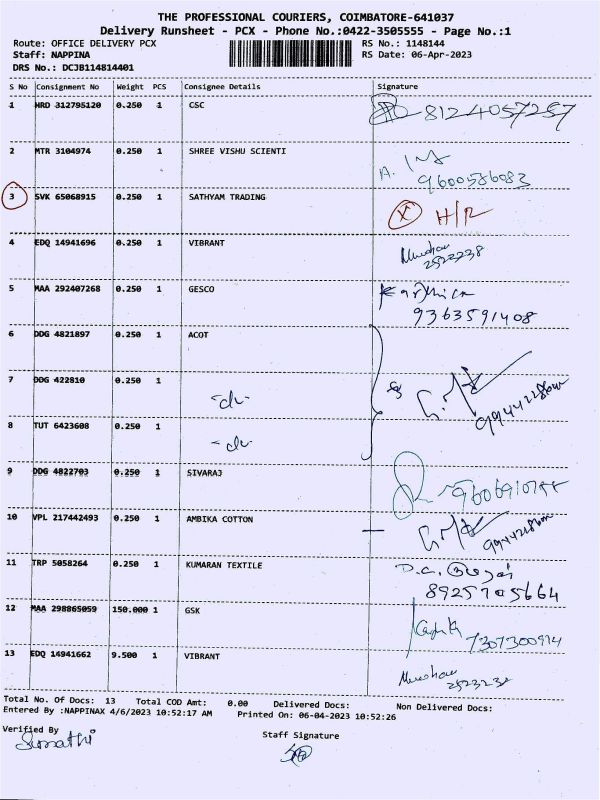 THE PROFESSIONAL COURIERS, COIMBATORE-641037
Delivery Runsheet - PCX - Phone No.:0422-3505555 - Page No.:1
Route: OFFICE DELIVERY PCX RS No.: 1148144
Staff: NAPPINA RS Date: 06-Apr-2023
DRS No.: DCJB114814401
S No Consignment No Weight PCS Consignee Details Signature
1 HRD 312795120 0.250 1 CSC 8124057257
2 MTR 3104974 0.250 1 SHREE VISHU SCIENTI
9600586083
3 SVK 65068915 0.250 1 SATHYAM TRADING X H/R
4 EDQ 14941696 0.250 1 VIBRANT
2522238
5 MAA 292407268 0.250 1 GESCO Karthica
9363591408
6 DDG 4821897 0.250 1 ACOT
7 DDG 422810 0.250 1 -do-
8 TUT 6423608 0.250 1 -do-
9 DDG 4822703 0.250 1 SIVARAJ
10 VPL 217442493 0.250 1 AMBIKA COTTON
11 TRP 5058264 0.250 1 KUMARAN TEXTILE
8925705664
12 MAA 298865059 150.000 1 GSK
7307300914
13 EDQ 14941662 9.500 1 VIBRANT
2523238
Total No. Of Docs: 13 Total COD Amt: 0.00 Delivered Docs: Non Delivered Docs:
Entered By :NAPPINAX 4/6/2023 10:52:17 AM Printed On: 06-04-2023 10:52:26
Verified By Staff Signature
Sumathi